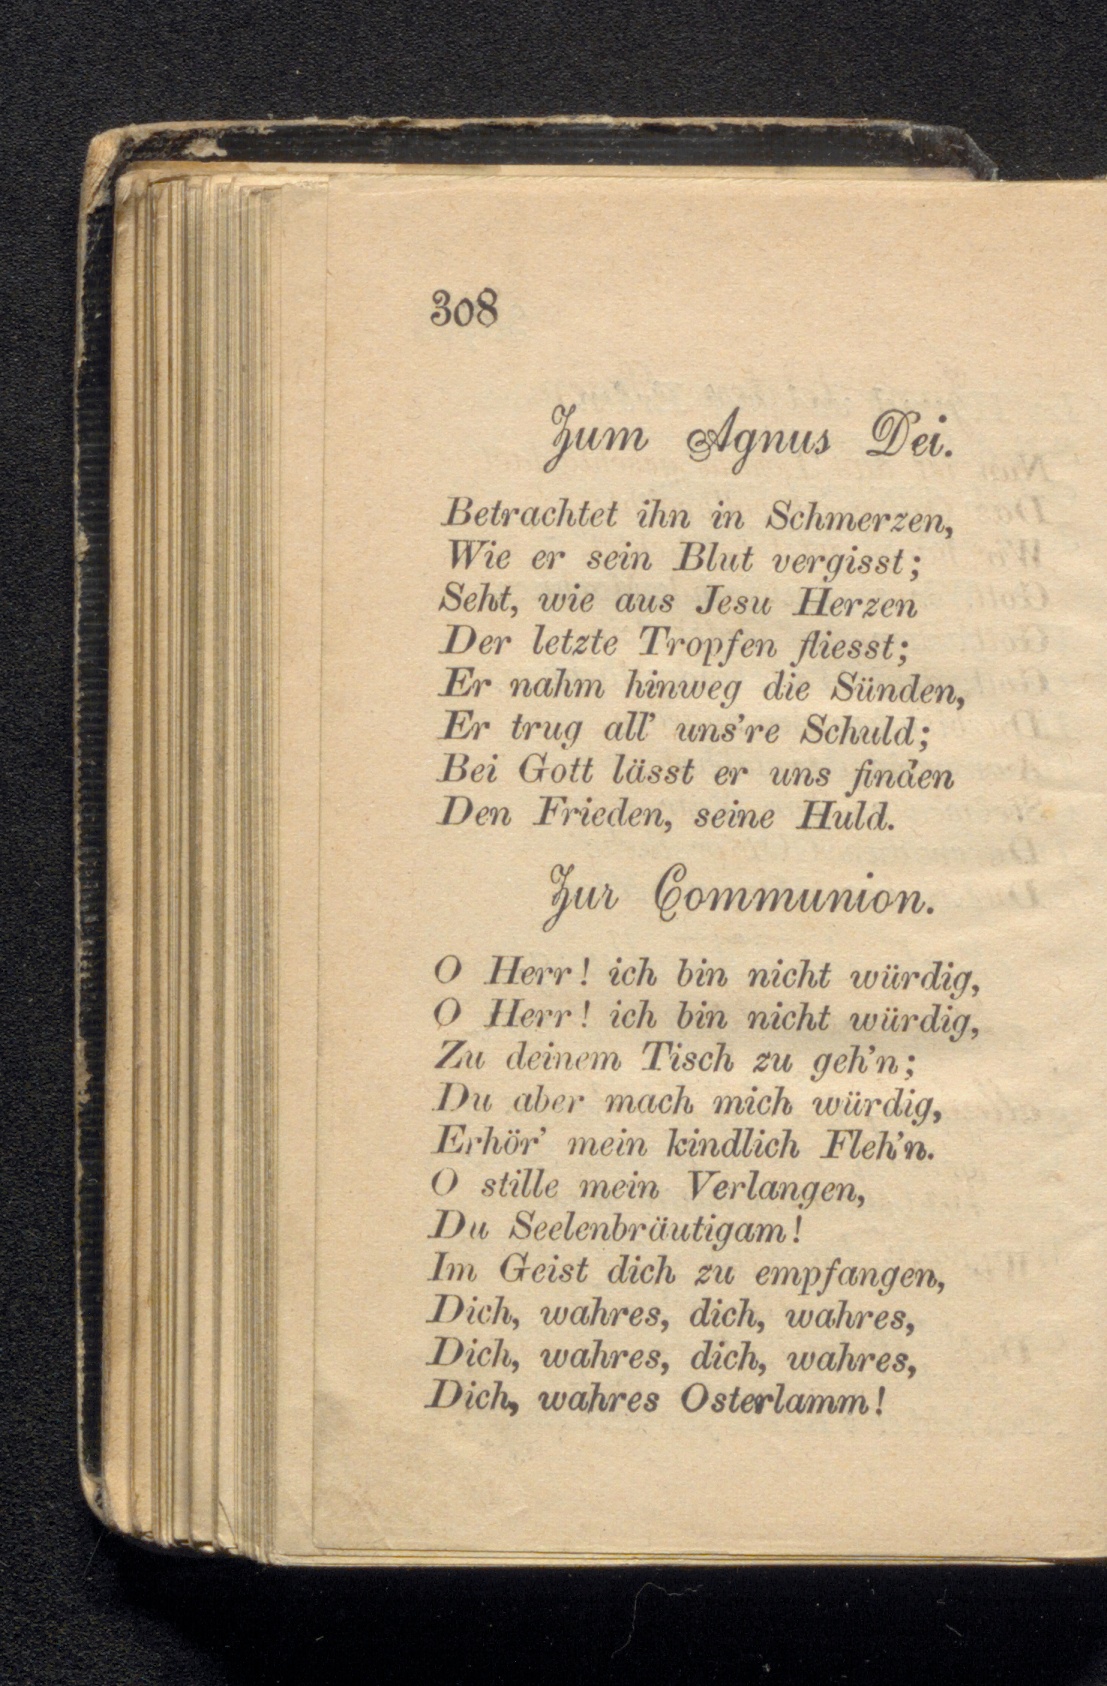 308
Zum Agnus Dei.
Betrachtet ihn in Schmerzen,
Wie er sein Blut vergisst;
Seht, wie aus Jesu Herzen
Der letzte Tropfen fliesst;
Er nahm hinweg die Sünden,
Er trug all' uns're Schuld;
Bei Gott lässt er uns finden
Den Frieden, seine Huld.
Zur Communion.
O Herr! ich bin nicht würdig,
O Herr! ich bin nicht würdig,
Zu deinem Tisch zu geh'n;
Du aber mach mich würdig,
Erhör' mein kindlich Fleh'n.
O stille mein Verlangen,
Du Seelenbräutigam!
Im Geist dich zu empfangen,
Dich, wahres, dich, wahres,
Dich, wahres, dich, wahres,
Dich, wahres Osterlamm!